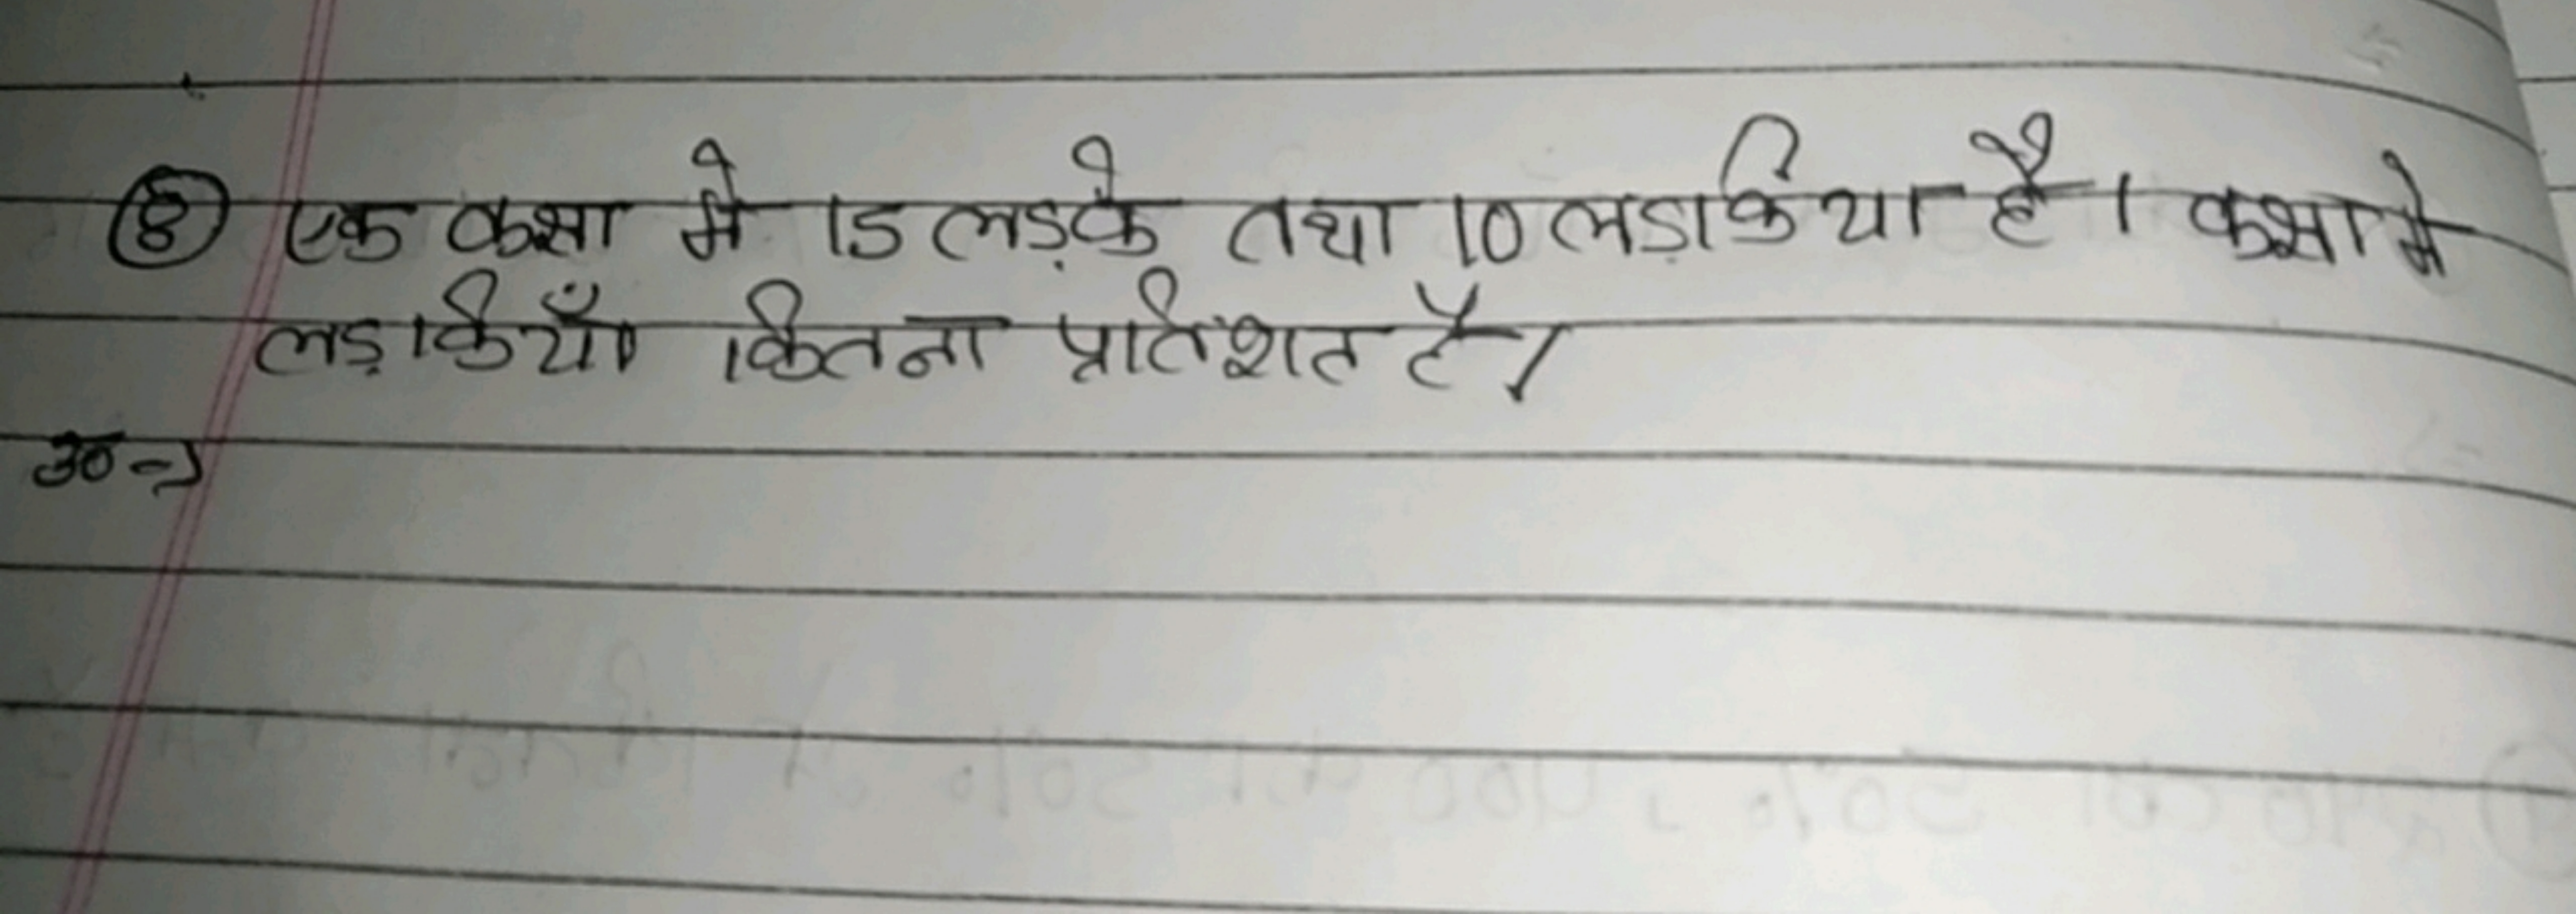 ⑧ एक कक्षा में 15 लड़के तथा 10 लड़किया है । कक्षा में
लड़कियाँ कितना प्रतिशत है।
उ० →